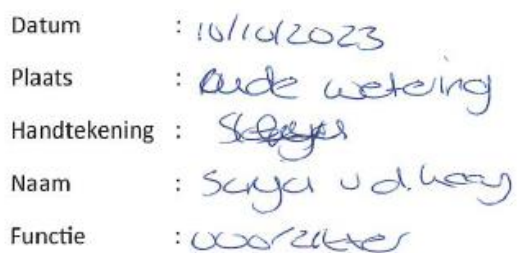 Datum : 10/10/2023
Plaats : Oude wetering
Handtekening :
Naam : Sanja v d. Haag
Functie : voorzitter